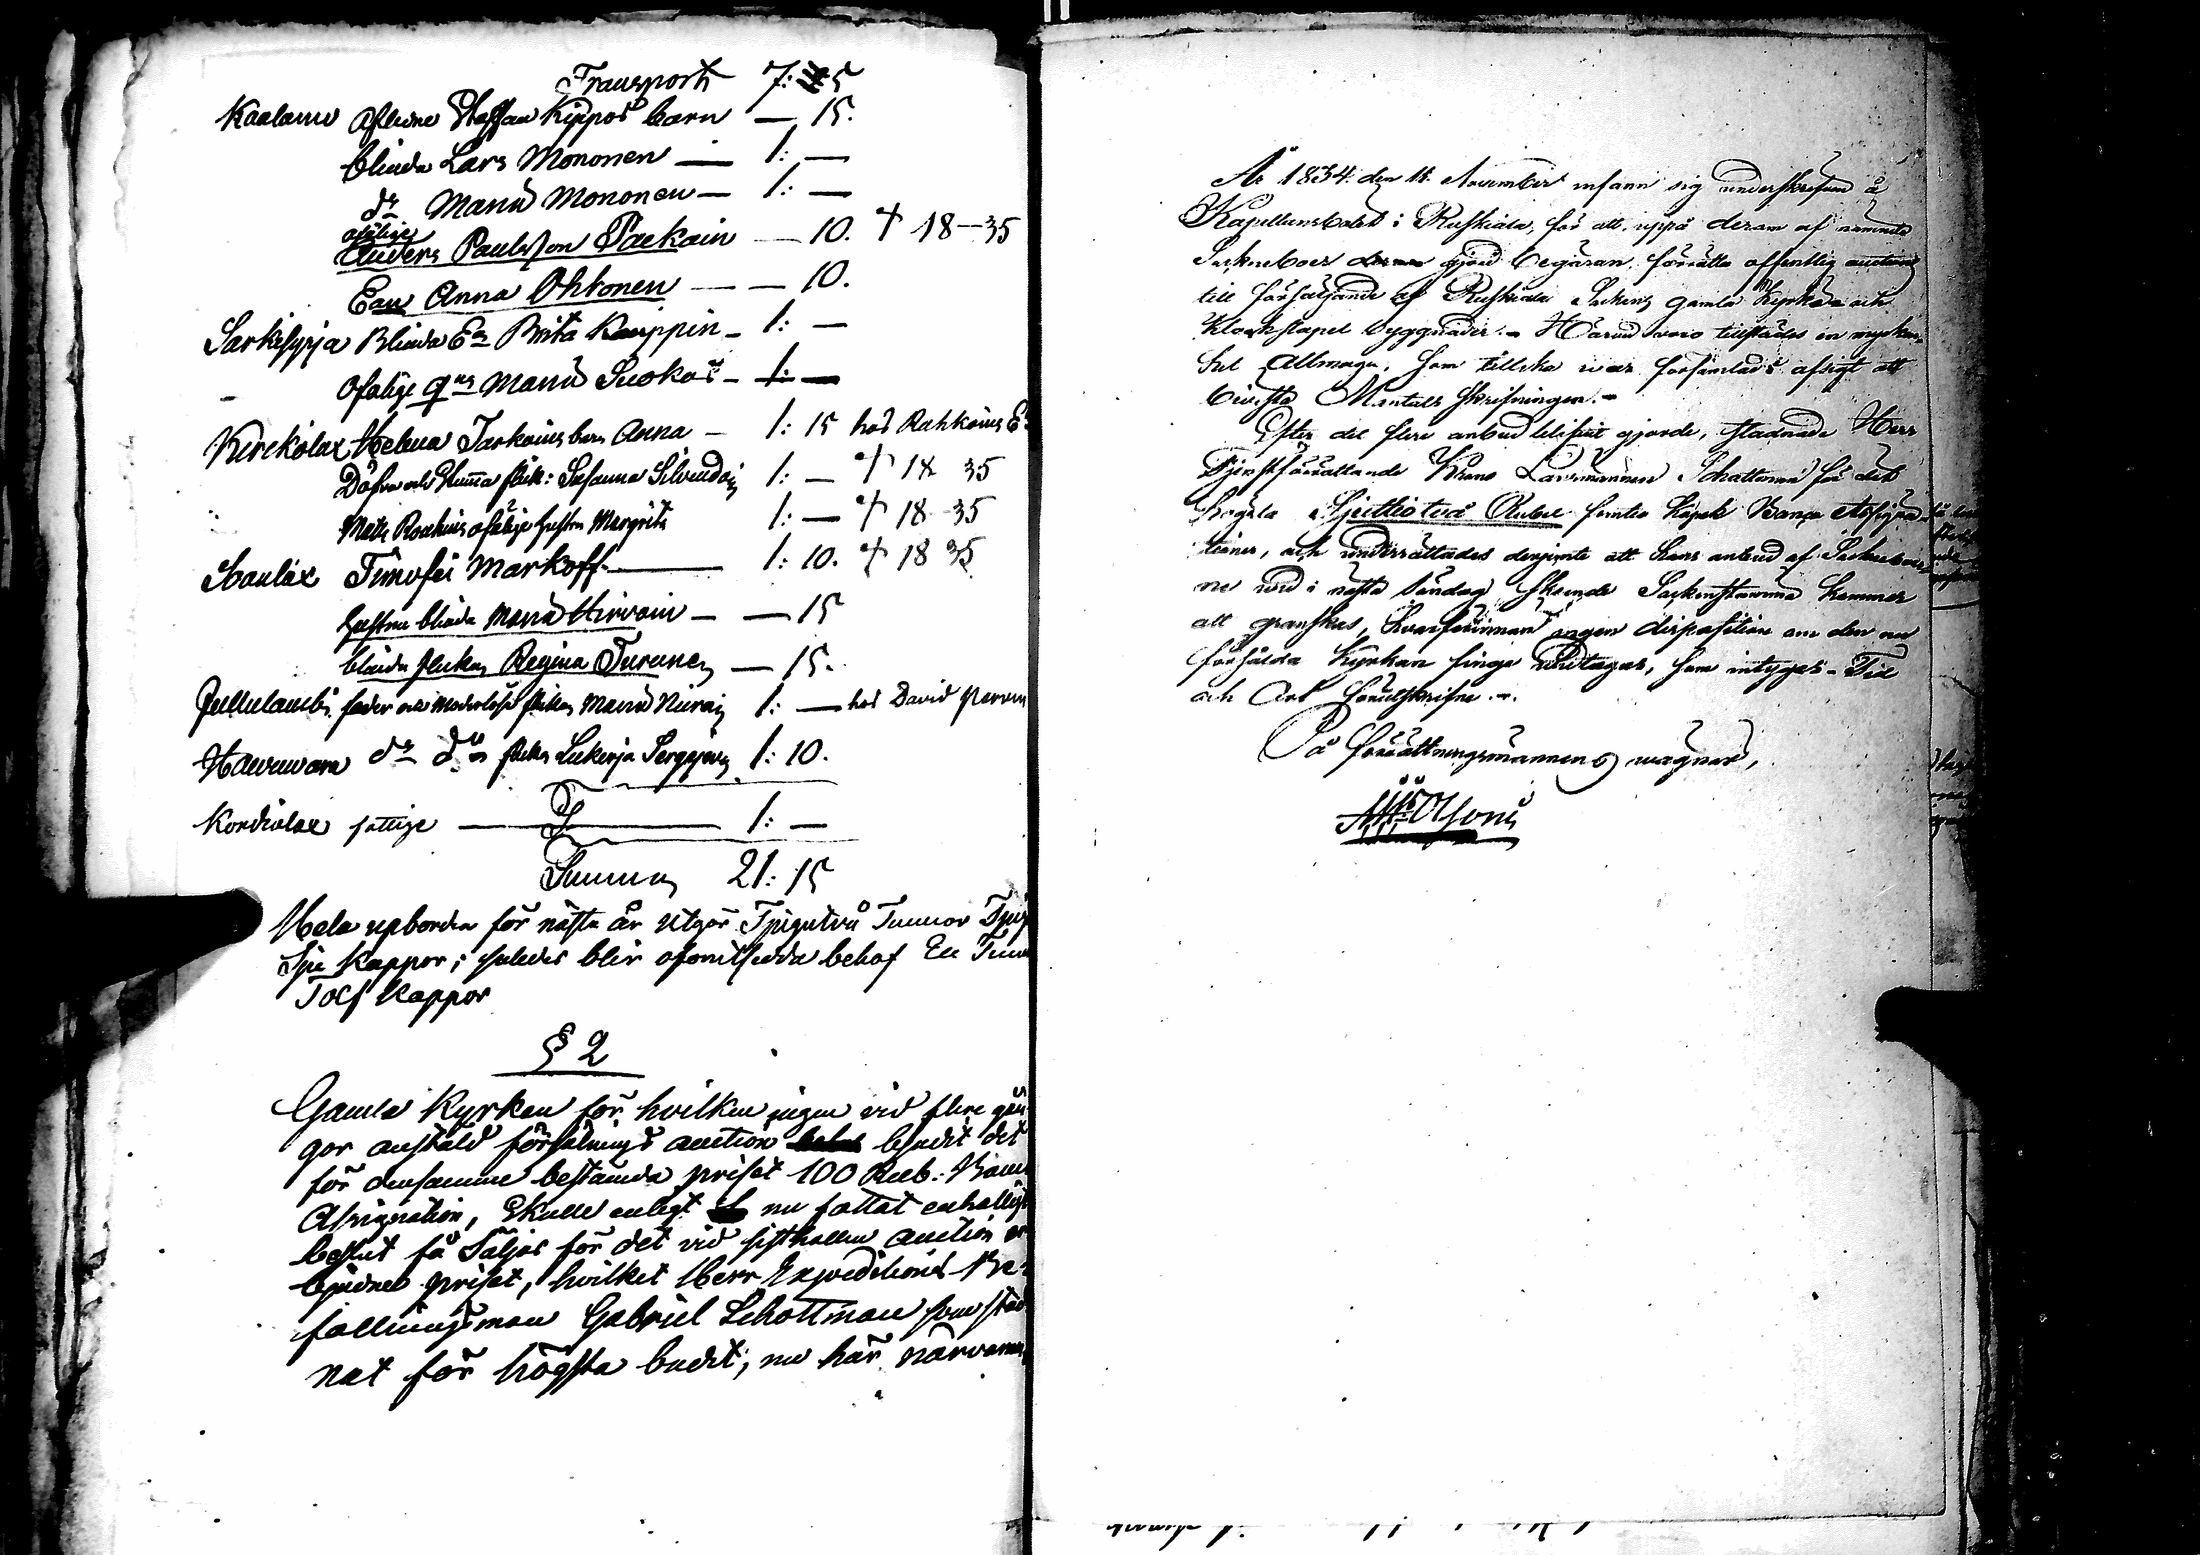 Transport 7: 5
Kaalamo Aflidne Staffan Kippos barn — 15.
blinda Lars Mononen — 1: —
do Maria Mononen — 1: —
ofälige
Anders Paulsson Paekain — 10. † 18–35
Ean Anna Ohkonen — — 10.
Särkisyrjä Blinda Ea Brita Kauppin – 1: —
Ofälige Maria Suokas – 1: —
Kirckolax Helena Tarkoins barn Anna – 1: 15 hos Rahkoins
Döfva och stumma flick: Susanna Silvendoin 1: — † 18 35
Mats Roskins ofälige hustru Margrita 1: — † 18 35
Soanlax Timofei Markoff — 1: 10. † 18 35
hustru blinda Maria Hirvoin — — 15
blinda flickan Regina Turunen — 15.
Pullulambi fader och moderlösa flickan Maria Nurain 1: — hos David
Haukuvara do do flickan Lukeria Sergejevn 1: 10.
Kordiolax fattige — 1: —
Summa 21: 15
Hela upborden för nästa år utgör Tjugutvå Tunnor
Sju kappor; således blir ofömitsedda behof En
Tolf Kappor
§ 2
Gamla Kyrkan för hvilken ingen vid flere gån
gor anstäld försälnings auction budit det
för densamma bestämda priset 100 Rub:
Assignation, skulle enligt nu fattat enhälligt
beslut få säljas för det vid sisthållne auction
budne priset, hvilket Herr Expeditions Be-
fallningsman Gabriel Schottman som stad
nat för högsta budet, nu här närvaran
År 1834 den 11 November infann sig underskrifven å
Kapellansbolet i Ruskiala, för att, uppå derom af nämnde
Sockneboer gjord begäran, förrätta offentlig auction
till försäljande af Ruskiala Sockens gamla Kyrka och
Klockstapel byggnader. – Härvid voro tillstädes en mycken-
het Allmoge, som tillika var församlad i afsigt att
bevista Mantals skrifningen. –
Efter det flere anbud blifvit gjorde, stadnade Herr
Tjenstförrättande Krono Länsmannen Schottman för det
högsta Sjuttiotvå Rubel femtio kopek Banco Assigna-
tioner, och underrättades derjemte att hans anbud af Sockneboer-
ne vid i nästa Söndag skeende Sockenstämma kommer
att granskas, hvarförinnan ingen disposition om den nu
försålda Kyrkan finge vidtagas, som intygas – Tid
och Ort förutskrifne. –
På förrättningsmannens vägnar,